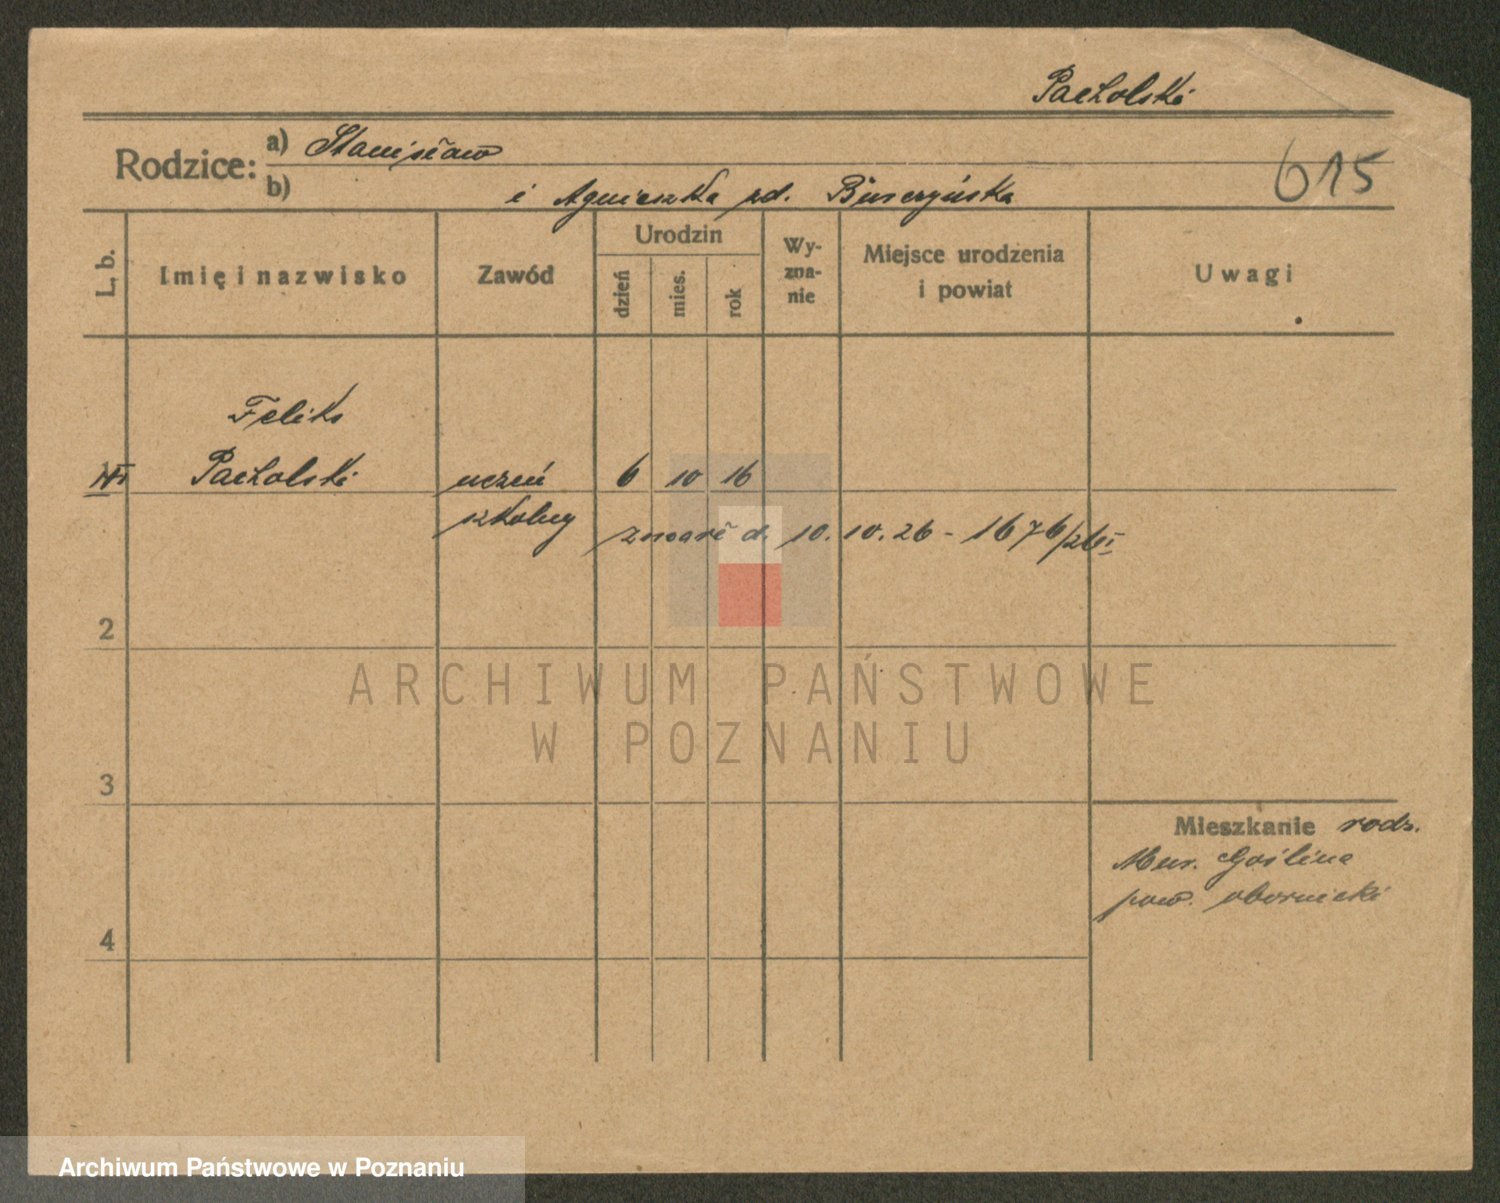 Pacholski
Rodzice: a) Stanisław
b) i Agnieszka zd.
615
L. b.
Imię i nazwisko
Zawód
Urodzin
dzień
mies.
rok
Wy-
zna-
nie
Miejsce urodzenia
i powiat
Uwagi
Feliks
Pacholski uczeń 6 10 16
szkolny
zmarł d. 10.10.26 - 1676/26
2
3
4
Mieszkanie rodz.
Mur. Goślina
pow. obornicki
ARCHIWUM PAŃSTWOWE
W POZNANIU
Archiwum Państwowe w Poznaniu